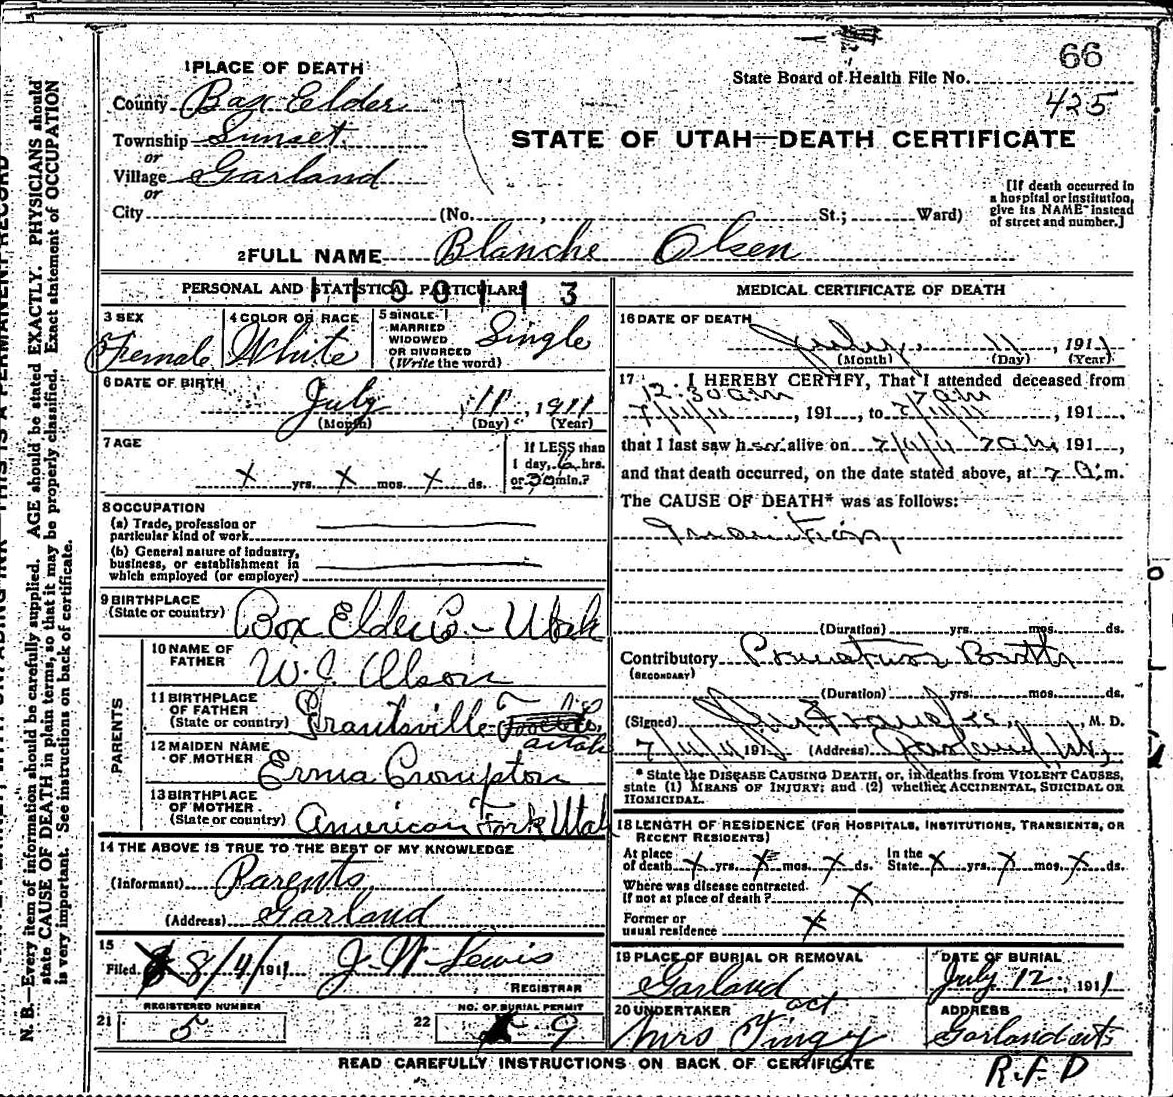 66
State Board of Health File No.
425
1 PLACE OF DEATH
County Box Elder
Township Sunset
or
Village Garland
or
STATE OF UTAH—DEATH CERTIFICATE
City (No. , St.; Ward)
[If death occurred in
a hospital or institution,
give its NAME instead
of street and number.]
2 FULL NAME Blanche Olsen
PERSONAL AND STATISTICAL PARTICULARS
3 SEX
Female
4 COLOR OR RACE
White
5 SINGLE
MARRIED
WIDOWED
OR DIVORCED
(Write the word)
Single
6 DATE OF BIRTH
July 11, 1911
(Month) (Day) (Year)
7 AGE
x yrs. x mos. x ds.
If LESS than
1 day, 6 hrs.
or 30 min.?
8 OCCUPATION
(a) Trade, profession or
particular kind of work
(b) General nature of industry,
business, or establishment in
which employed (or employer)
9 BIRTHPLACE
(State or country) Box Elder Co - Utah
PARENTS
10 NAME OF
FATHER
W. J. Olson
11 BIRTHPLACE
OF FATHER
(State or country) Grantsville
12 MAIDEN NAME
OF MOTHER
Erma Crompton
13 BIRTHPLACE
OF MOTHER
(State or country) American Fork Utah
14 THE ABOVE IS TRUE TO THE BEST OF MY KNOWLEDGE
(Informant) Parents
(Address) Garland
15
Filed 8/4/1911 J. W. Lewis
REGISTRAR
REGISTERED NUMBER
21 5
NO. OF BURIAL PERMIT
22 9
MEDICAL CERTIFICATE OF DEATH
16 DATE OF DEATH
July 11, 1911
(Month) (Day) (Year)
17 I HEREBY CERTIFY, That I attended deceased from
12.30 am 7 am
7/11/11, 191 , to 7/11/11, 191 ,
that I last saw her alive on 7/11/11 7 am, 191 ,
and that death occurred, on the date stated above, at 7 a.m.
The CAUSE OF DEATH* was as follows:
Inanition,
(Duration) yrs. mos. ds.
Contributory Premature Birth
(SECONDARY)
(Duration) yrs. mos. ds.
(Signed) , M. D.
191 (Address) Garland, Ut,
* State the DISEASE CAUSING DEATH, or, in deaths from VIOLENT CAUSES,
state (1) MEANS OF INJURY; and (2) whether ACCIDENTAL, SUICIDAL or
HOMICIDAL.
18 LENGTH OF RESIDENCE (FOR HOSPITALS, INSTITUTIONS, TRANSIENTS, OR
RECENT RESIDENTS)
At place
of death x yrs. x mos. x ds.
In the
State x yrs. x mos. x ds.
Where was disease contracted
If not at place of death? x
Former or
usual residence x
19 PLACE OF BURIAL OR REMOVAL
Garland
DATE OF BURIAL
July 12, 1911
20 UNDERTAKER
Mrs Tingy
ADDRESS
Garland
R.F.D
READ CAREFULLY INSTRUCTIONS ON BACK OF CERTIFICATE
N. B.—Every item of information should be carefully supplied. AGE should be stated EXACTLY. PHYSICIANS should
state CAUSE OF DEATH in plain terms, so that it may be properly classified. Exact statement of OCCUPATION
is very important. See instructions on back of certificate.